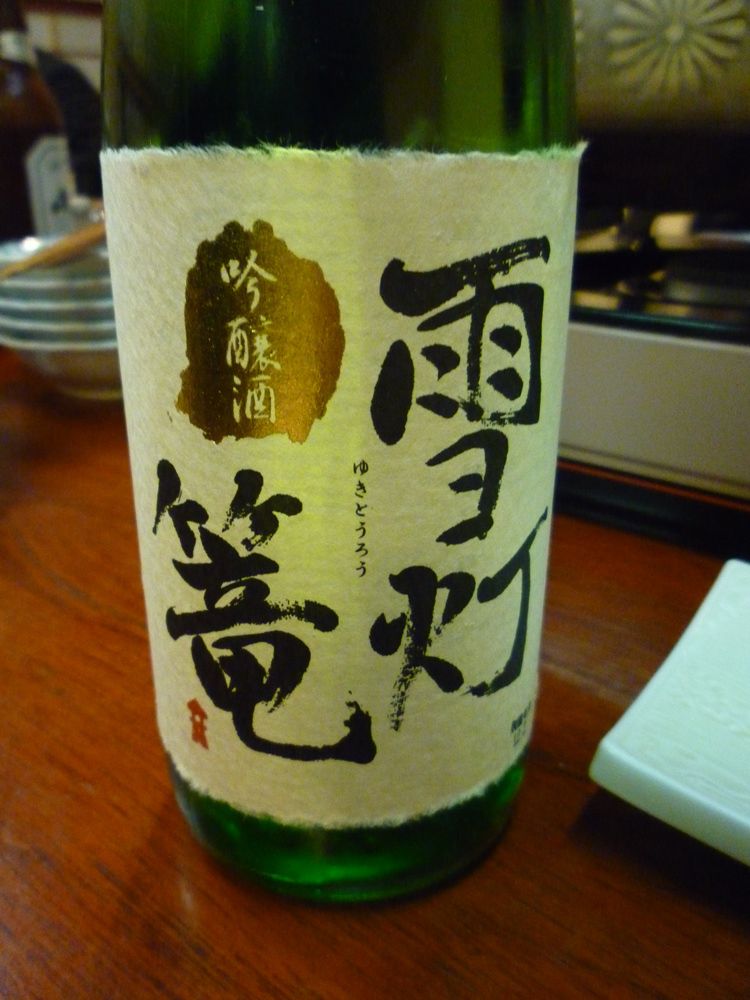 雪灯
ゆきとうろう
篭
吟醸酒